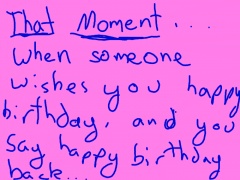 That Moment...
when someone
wishes you happy
birthday, and you
say happy birthday
back...